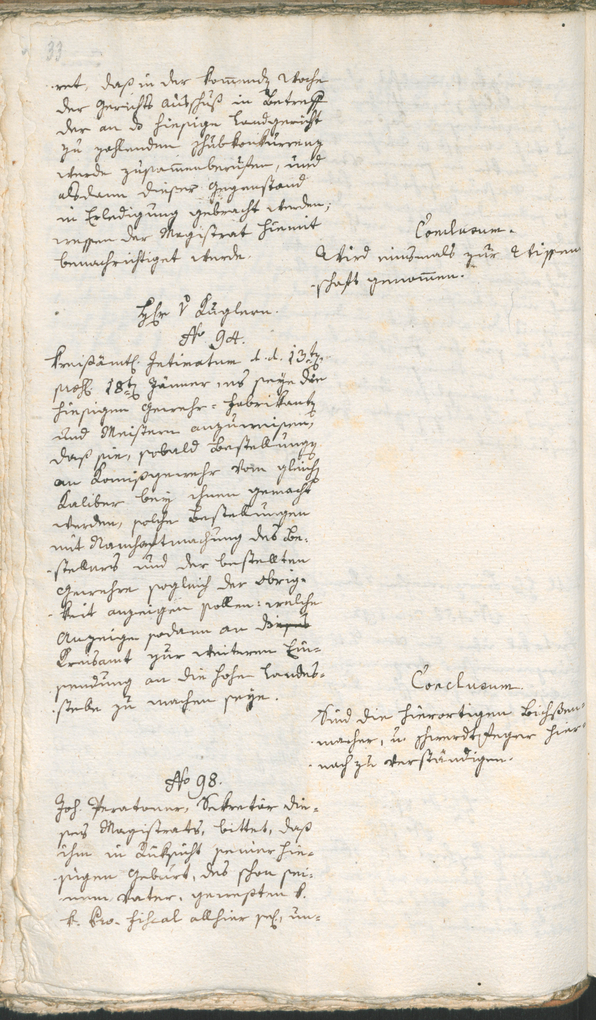 33
ret, daß in der kom̄endẽ Woche
der Gerichts Ausschuß in Betreff
der an das hiesige Landgericht
zu zahlenden Schubkonkurrenz
werde zusam̄enberufen, und
alsdann dieser Gegenstand
in Erledigung gebracht werden;
wessen der Magistrat hiemit
benachrichtiget werde.
Conclusum.
Wird einsmals zur Wissen
schaft genom̄en.
Hr. v. Kuglern.
No 94.
Kreisämtl. Intimatum d. d. 13tẽ
18tẽ Jänner: es seye die
hiesigen Gewehr-Fabrikantẽ
und Meistern anzuweisen,
daß sie, sobald Bestellungẽ
an Komißgewehr vom gleichẽ
Kaliber bey ihnen gemacht
werden, solche Bestellungen
mit Namhaftmachung des Be-
stellers und der bestellten
Gewehre sogleich der Obrig-
keit anzeigen sollen: welche
Anzeige sodann an
Kreisamt zur weiteren Ein-
sendung an die hohe Landes-
stelle zu machen seye.
Conclusum.
Sind die hierortigen Bichsen-
macher, u. Schwerdtfeger hier-
nach zu verständigen.
No 98.
Joh. Peratoner, Sekretär die-
ses Magistrats, bittet, daß
ihm in Rüksicht seiner hie-
sigen Geburt, des schon sei-
nem Vater, gewesten k.
k. Pro-Fiscal allhier sel. un-